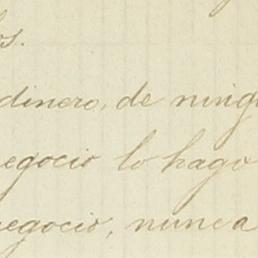 os.
dinero, de ning
negocio lo hago
negocio, nunca